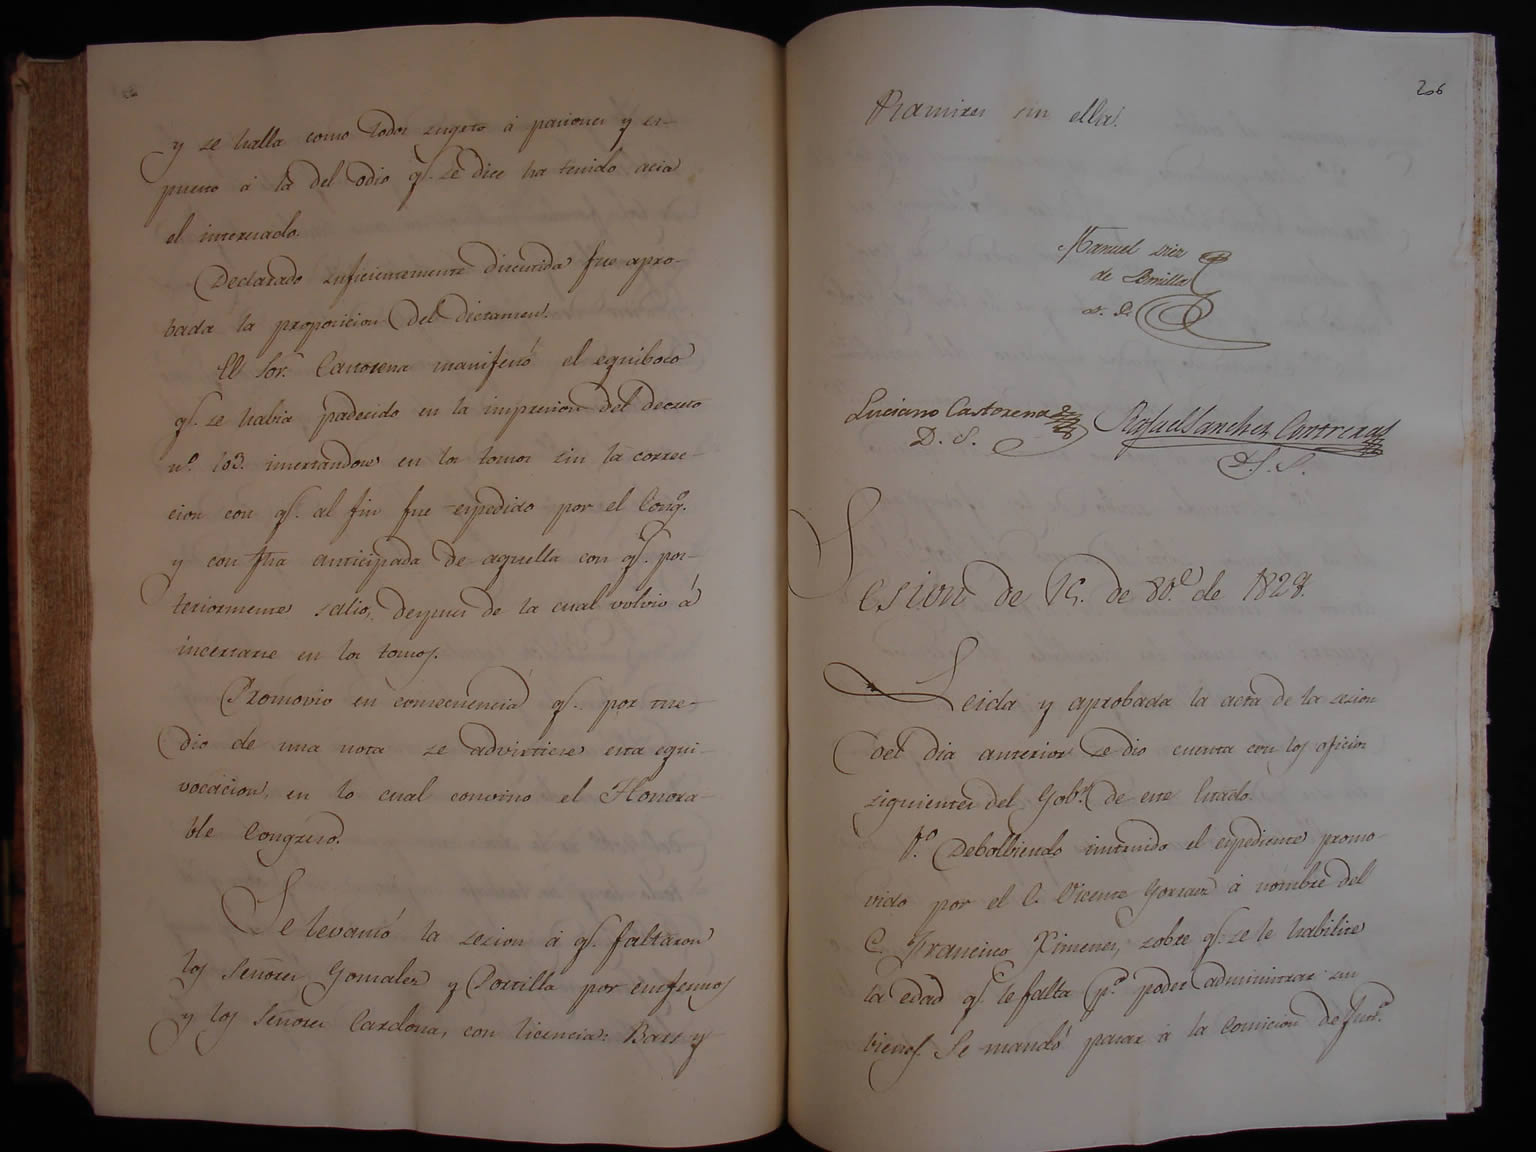 y se halla como todos sugeto á pasiones y es-
puesto á la del odio q.e se dice ha tenido acia
el interesado.
Declarado suficientemente discutida fue apro-
bada la proposicion del dictamen.
El Sor. Castorena manifestó el equiboco
q.e se habia padecido en la impresion del decreto
n.o 103. insertandose en los tomos sin la correc-
cion con q.e al fin fue expedido por el Cong.o
y con fha anticipada de aquella con q.e pos-
teriormente salio, despues de la cual volvio á
incertarse en los tomos.
Promovio en consecuencia q.e por me-
dio de una nota se advirtiese esta equi-
vocacion, en lo cual convino el Honora-
ble Congreso.
Se levantó la sesion á q.e faltaron
los Señores Gonzalez y Portilla por enfermos
y los Señores Cardona, con licencia: Bars y
206
Ramires sin ella.
Manuel Diez
de Bonilla
D. P.
Luciano Castorena
D. S.
Rafael Sanchez Contreras
D. S. S.
Sesion de 15. de 8b.e de 1828.
Leida y aprobada la acta de la sesion
del dia anterior se dio cuenta con los oficios
siguientes del Gob.o de este Estado.
1.o Debolbiendo instruido el expediente promo-
vido por el C. Vicente á nombre del
C. Francisco Ximenes, sobre q.e se le habilite
la edad q.e le falta p.a poder administrar sus
bienes. Se mandó pasar á la Comicion de Just.a